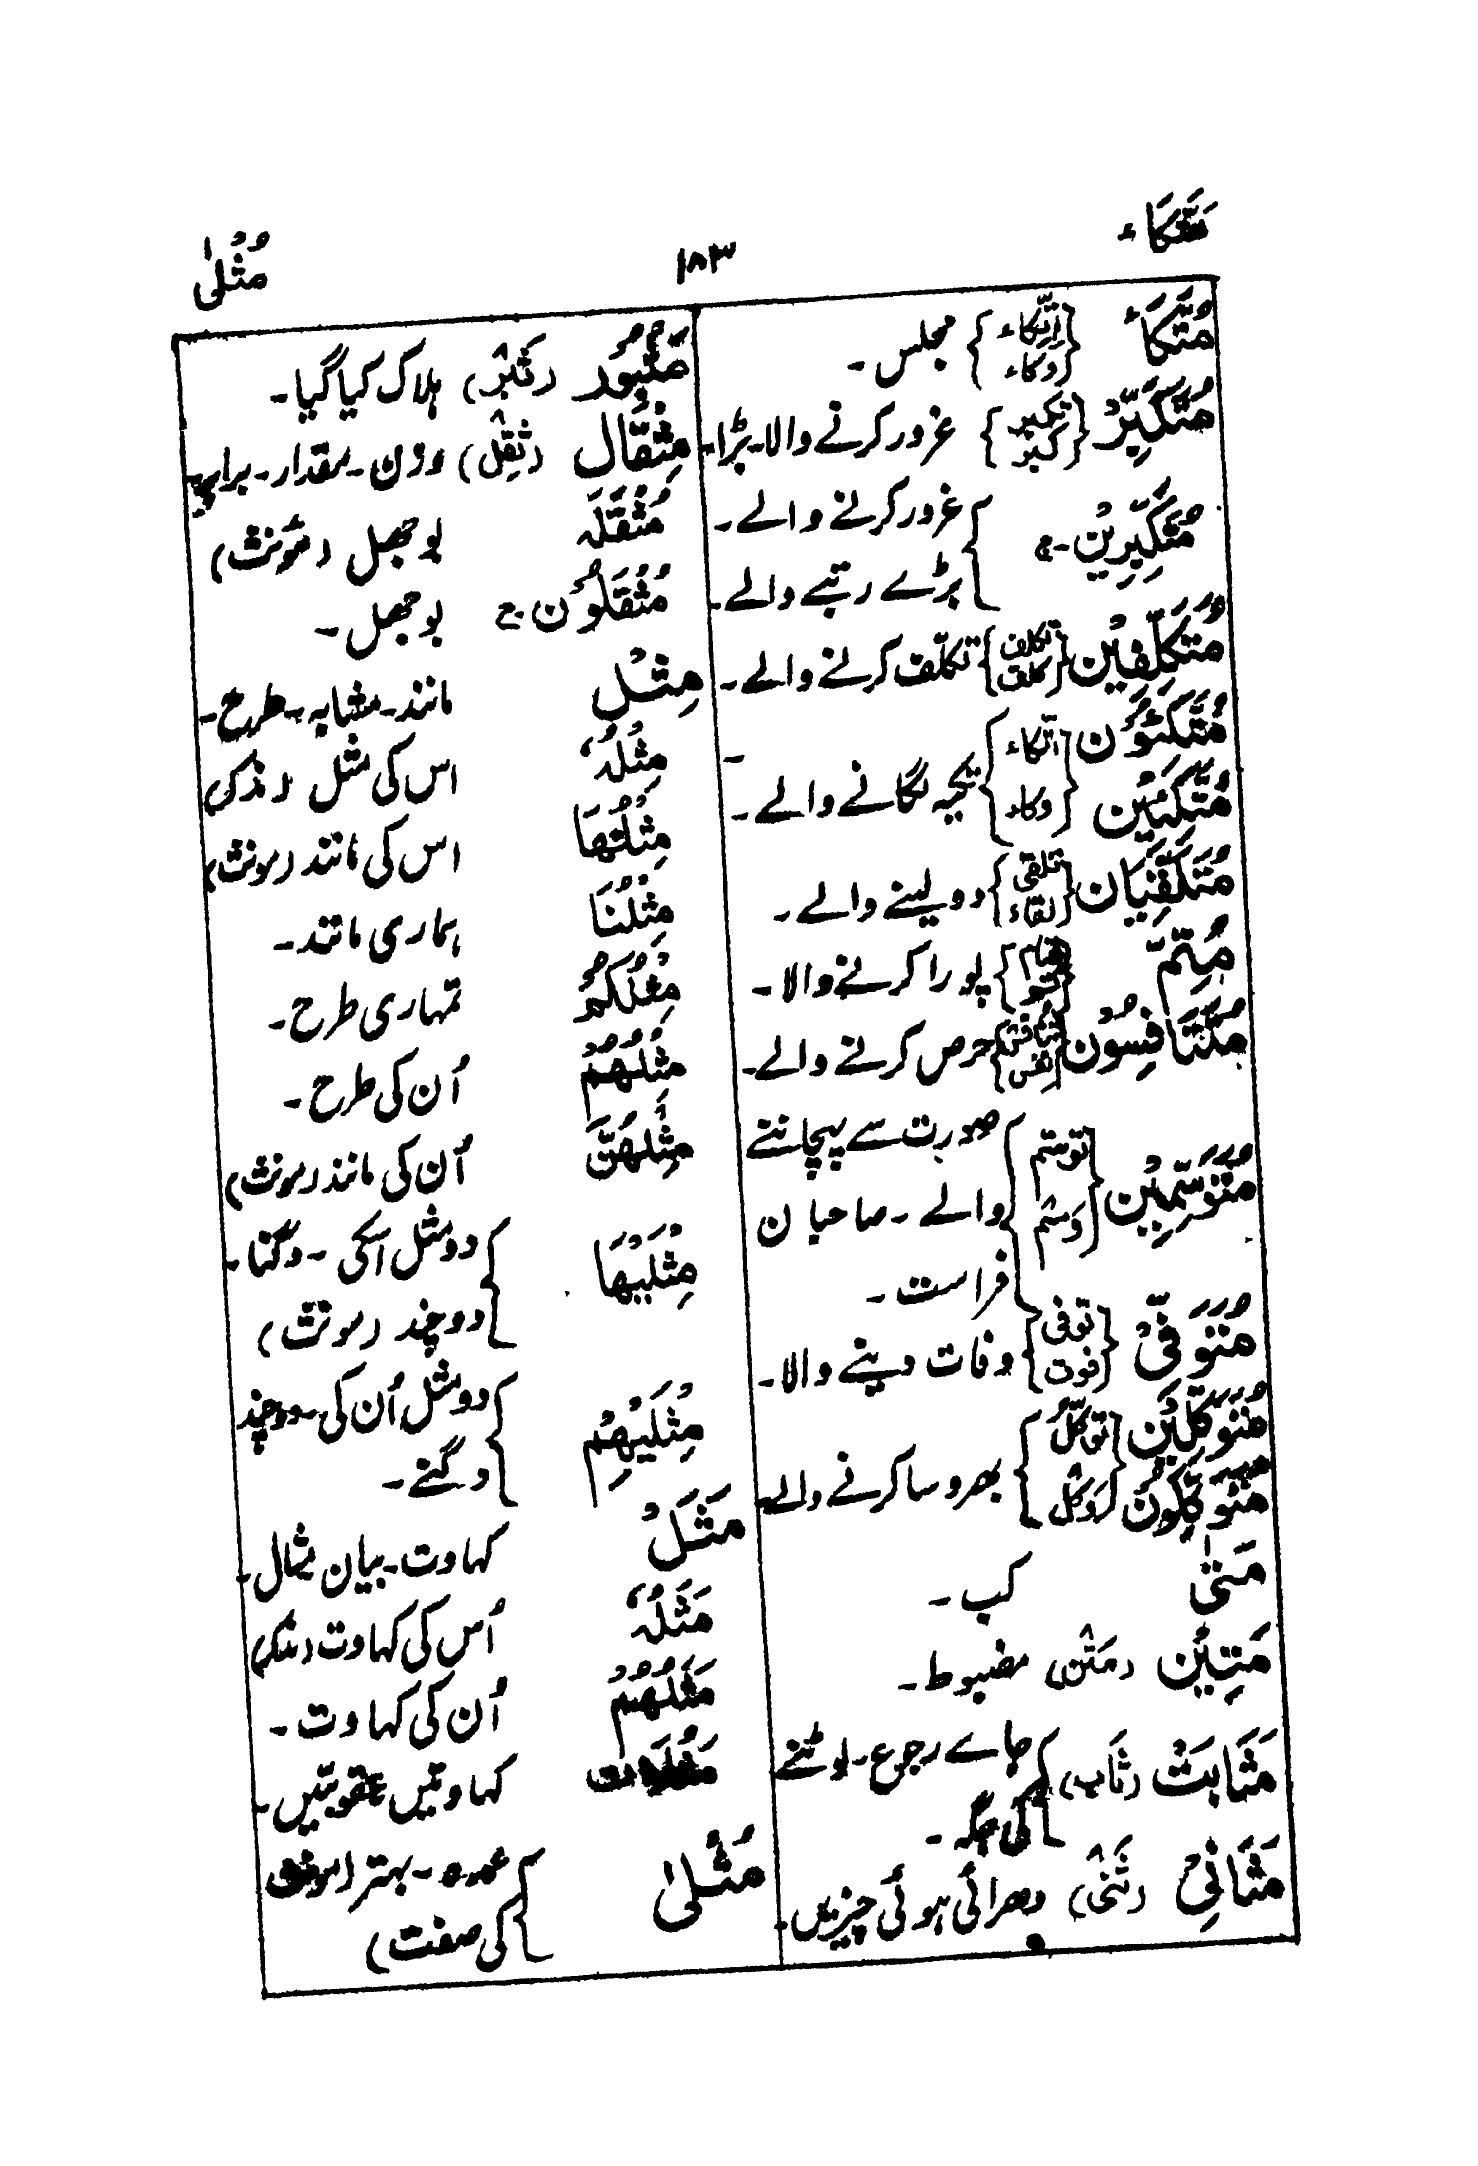 متکاء
۱۸۳
مُثْلیٰ
مُتَّکَاءً {اِتِّکاء وکاء} مجلس۔
مُتَکَبِّرْ {تکبر کبر} غرور کرنے والا۔ بڑا۔
مُتَکَبِّرِیْنَ۔ج غرور کرنے والے۔
بڑے رتبے والے۔
مُتَکَلِّفِیْن {تکلف کلف} تکلّف کرنے والے۔
مُتَّکِئُوْن {اتکاء
مُتَّکِئِیْن وکاء} تکیہ لگانے والے۔
مُتَلَقِّیَان {تلقی لقاء} دو لینے والے۔
مُتِمّ پورا کرنے والا۔
مُتَنَافِسُوْن {تنافس نفس} حرص کرنے والے۔
مُتَوَسِّمِیْن {توسّم وَسْم} صورت سے پہچاننے
والے۔ صاحبان
فراست۔
مُتَوَفِّیْ {توفی فوت} وفات دینے والا۔
مُتَوَکِّلِیْن {توکّل
مُتَوَکِّلُوْن وَکْل} بھروسا کرنے والے۔
مَتیٰ کب۔
مَتِیْن (مَتْن) مضبوط۔
مَثَابَتْ (ثَاب) جاے رجوع۔ لوٹنے
کی جگہ۔
مَثَانِیْ (ثَنْی) دھرائی ہوئی چیزیں۔
مَثْبُوْر (ثَبْر) ہلاک کیا گیا۔
مِثْقَال (ثِقْل) وزن۔ مقدار۔ برابر۔
مُثْقَلَہ بوجھل (مؤنث)
مُثْقَلُوْن۔ج بوجھل۔
مِثْل مانند۔ مشابہ۔ طرح۔
مِثْلُہٗ اس کی مثل (مذکر)
مِثْلُھَا اس کی مانند (مونث)
مِثْلُنَا ہماری مانند۔
مِثْلُکُمْ تمہاری طرح۔
مِثْلُھُمْ اُن کی طرح۔
مِثْلُھُنَّ اُن کی مانند (مونث)
مِثْلَیْھَا دو مثل اسکی۔ دگنا۔
دو چند (مونث)
مِثْلَیْھِمْ دو مثل اُن کی۔ دوچند
دگنے۔
مَثَلُ کہاوت۔ بیان مثال۔
مَثَلُہٗ اُس کی کہاوت (مذکر)
مَثَلُھُمْ اُن کی کہاوت۔
کہاوتیں عقوبتیں۔
مُثْلیٰ عمدہ۔ بہتر (مونث
کی صفت)